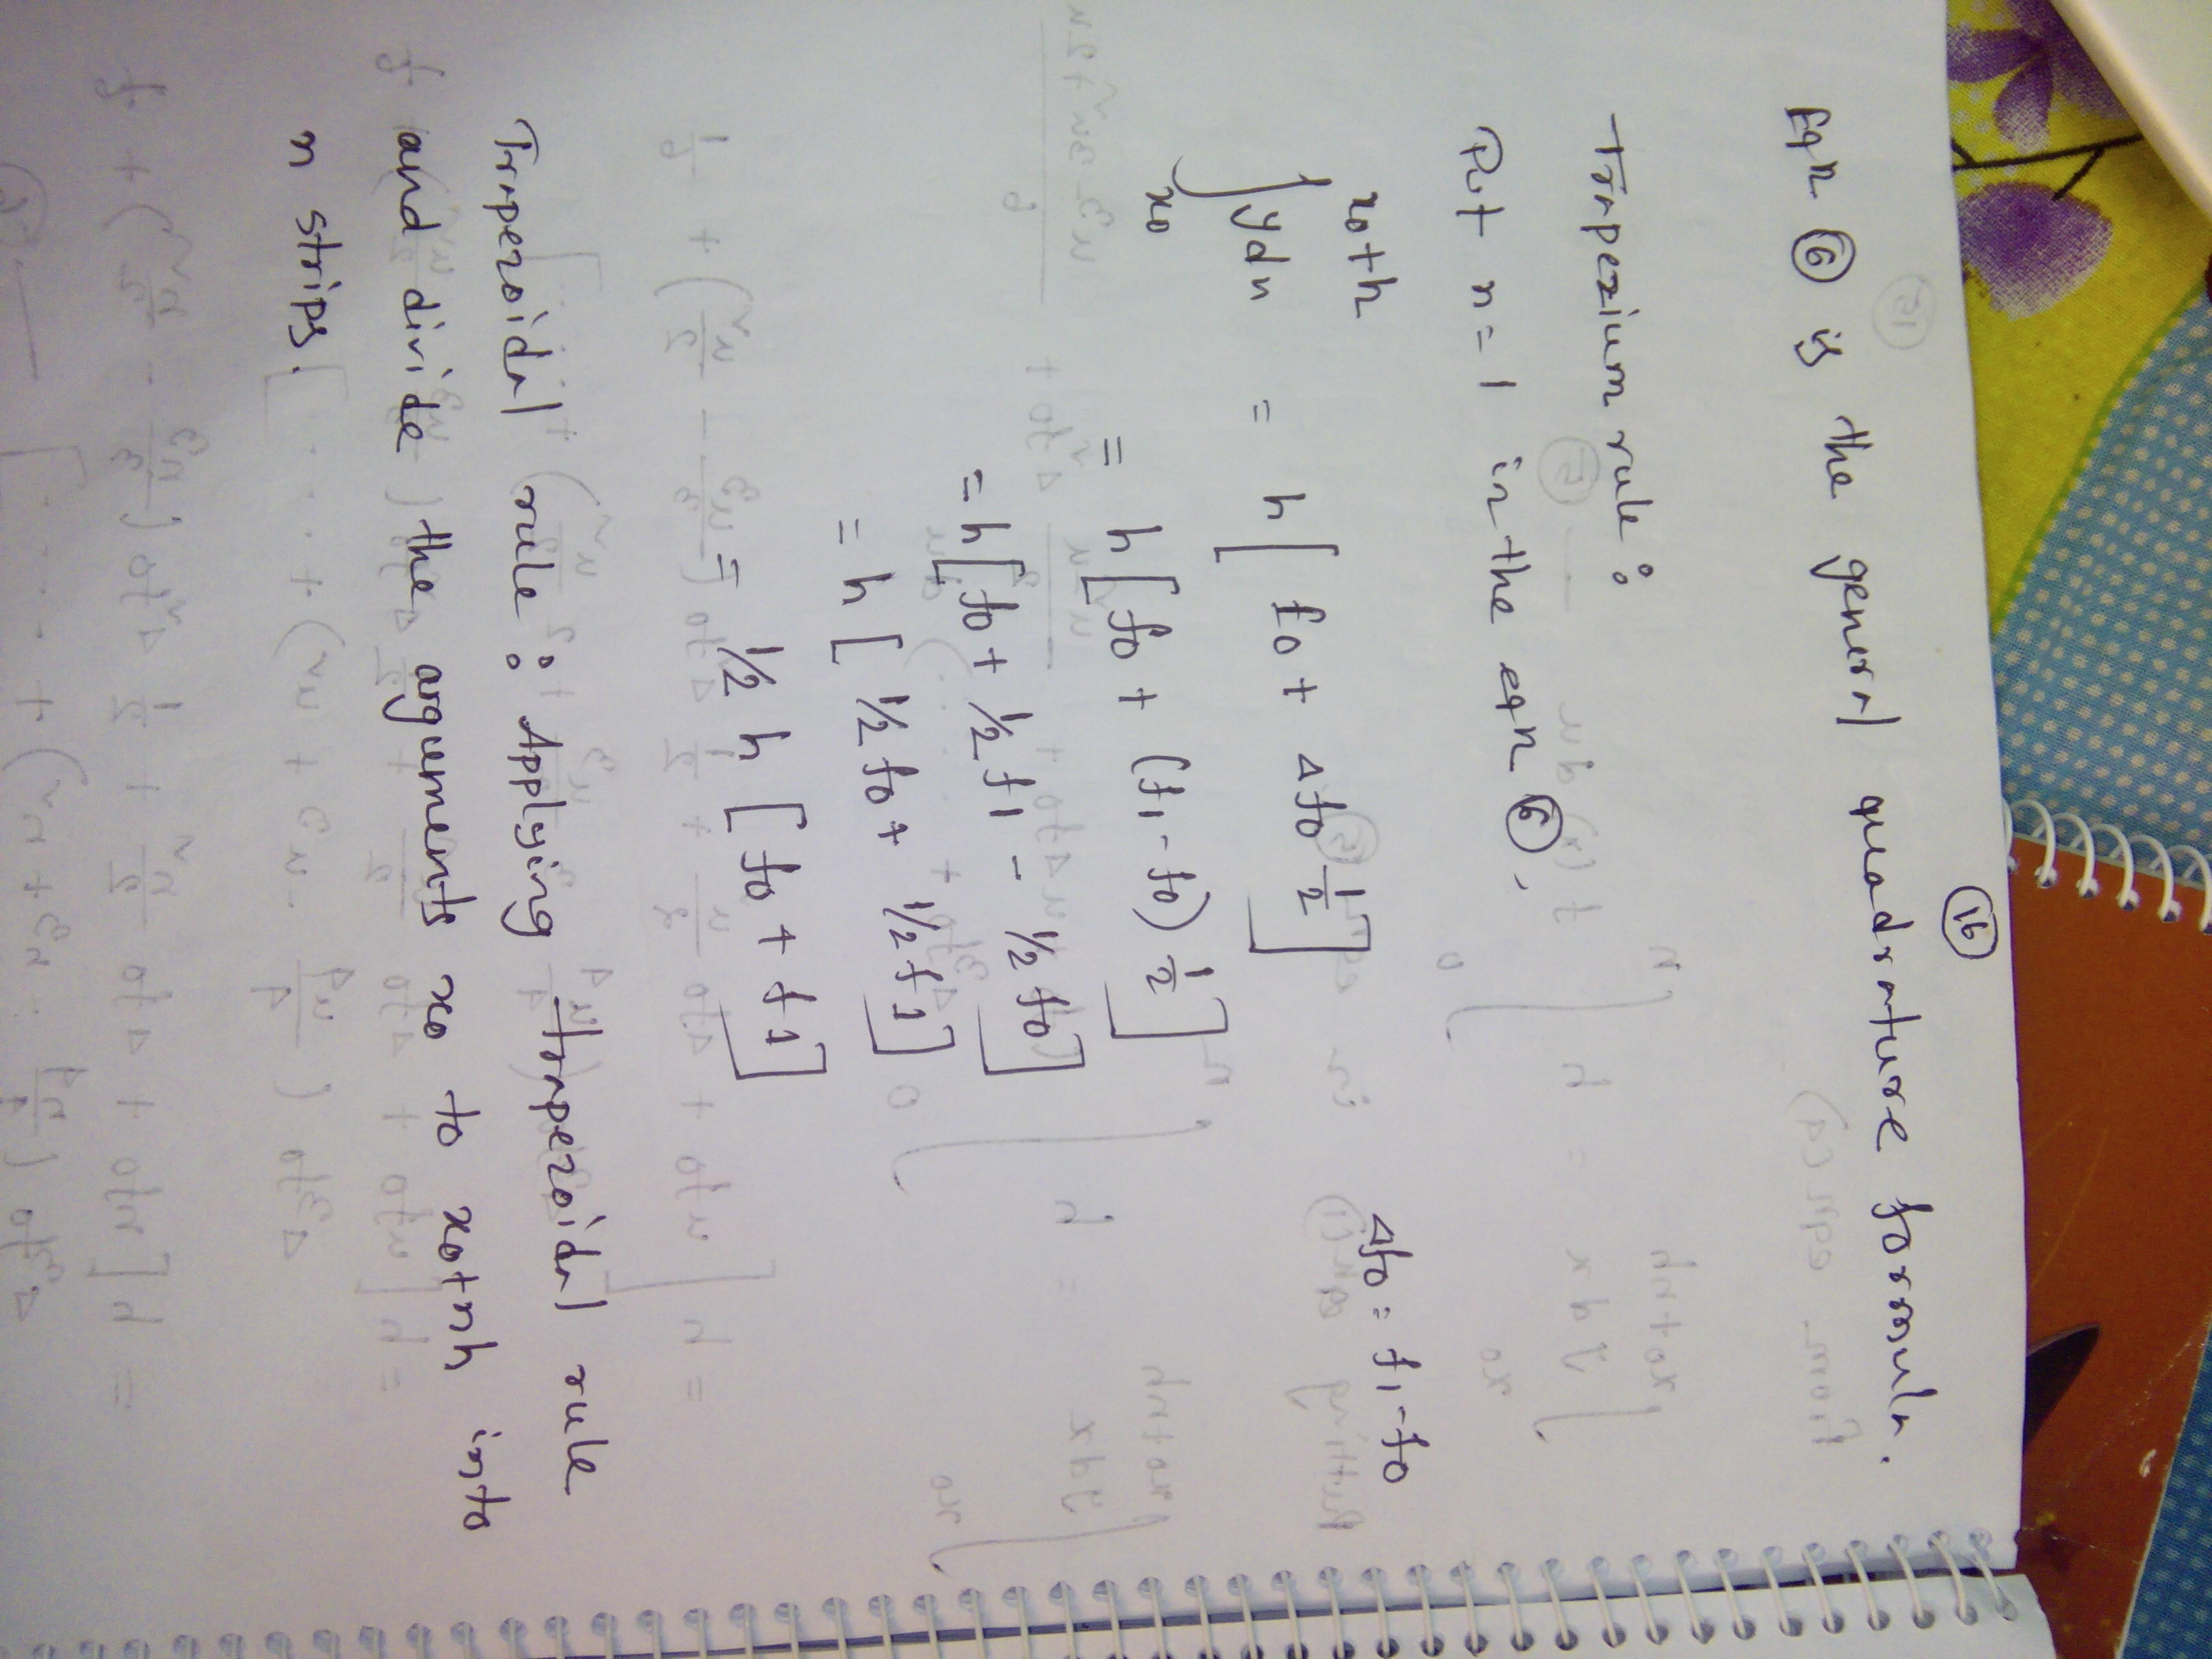 16
Eqn ⑥ is the general quadrature formula.
Trapezium rule :
Put n = 1 in the eqn ⑥,
x0+h
∫ ydx = h [ f0 + Δf0 1/2 ]
x0
Δf0 = f1 - f0
= h [ f0 + (f1 - f0) 1/2 ]
= h [ f0 + 1/2 f1 - 1/2 f0 ]
= h [ 1/2 f0 + 1/2 f1 ]
= 1/2 h [ f0 + f1 ]
Trapezoidal rule : Applying trapezoidal rule
and divide the arguements x0 to x0+nh into
n strips.